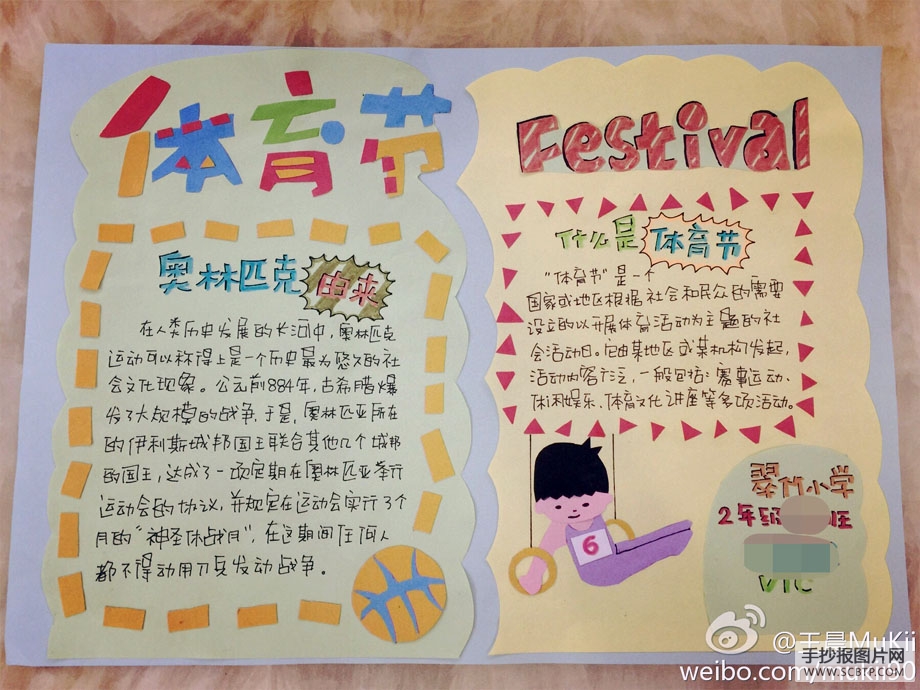 体育节
奥林匹克由来
在人类历史发展的长河中,奥林匹克
运动可以称得上是一个历史最为悠久的社
会文化现象。公元前884年,古希腊爆
发了大规模的战争,于是,奥林匹亚所在
的伊利斯城邦国王联合其他几个城邦
的国王,达成了一项定期在奥林匹亚举行
运动会的协议,并规定在运动会实行了个
月的“神圣休战月”,在这期间任何人
都不得动用刀兵发动战争。
Festival
什么是体育节
“体育节”是一个
国家或地区根据社会和民众的需要
设立的以开展体育活动为主题的社
会活动日。它由某地区或某机构发起,
活动内容广泛,一般包括:赛事运动、
休闲娱乐、体育文化讲座等多项活动。
6
翠竹小学
2年级 班
@王晨MuKii
weibo.com/mukii90
手抄报图片网
WWW.SCBTP.COM